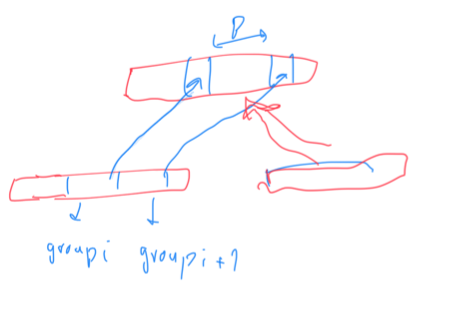 P
group i group i + 1